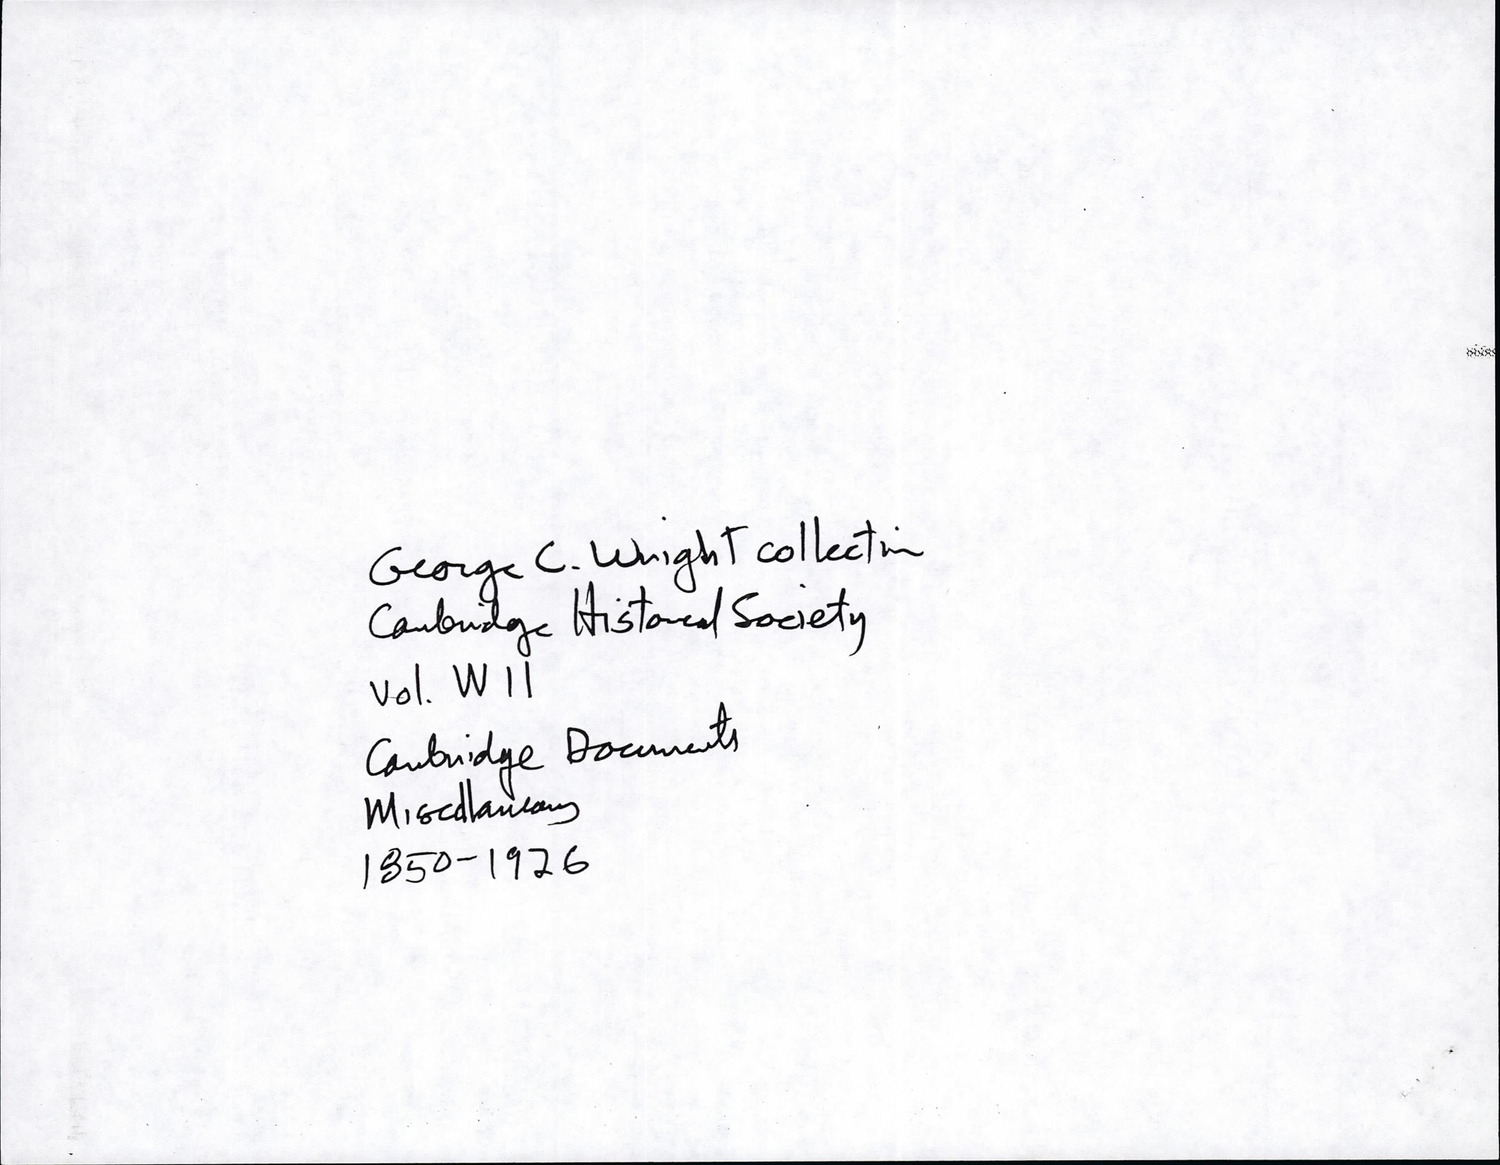 George C. Wright collection
Cambridge Historical Society
Vol. W 11
Cambridge Documents
Miscellaneous
1850-1926